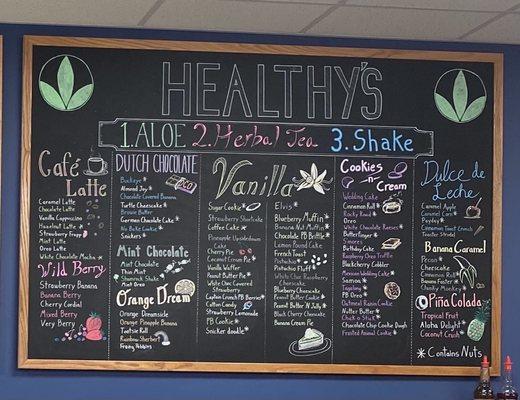 HEALTHY'S
1. ALOE 2. Herbal Tea 3. Shake
Café
Latte
Caramel Latte
Chocolate Latte
Vanilla Cappuccino
Hazelnut Latte *
Strawberry Frapp
Mint Latte
Oreo Latte
White Chocolate Mocha *
Wild Berry
Strawberry Banana
Banana Berry
Cherry Cordial
Mixed Berry
Very Berry
DUTCH CHOCOLATE
Buckeye
Almond Joy *
Chocolate Covered Banana
Turtle Cheesecake *
Brownie Batter
German Chocolate Cake *
No Bake Cookie *
Snickers *
Mint Chocolate
Mint Chocolate
Thin Mint
Shamrock Shake
Orange Dream
Orange Dreamsicle
Orange Pineapple Banana
Rainbow Sherbet
Frooty Pebbles
Vanilla
Sugar Cookie *
Strawberry Shortcake
Coffee Cake *
Pineapple Upsidedown
Cake
Cherry Pie
Coconut Cream Pie
Vanilla Waffer
Peanut Butter Pie *
White Choc Covered
Strawberry
Captain Crunch PB Berries *
Cotton Candy
Strawberry Lemonade
PB Cookie *
Snicker doodle *
Elvis *
Blueberry Muffin *
Banana Nut Muffin *
Chocolate PB Brittle *
Lemon Pound Cake
French Toast
Pistachio *
Pistachio Fluff *
White Choc Raspberry
Cheesecake
Blueberry Cheesecake
Peanut Butter Cookie *
Peanut Butter N Jelly *
Black Cherry Cheesecake
Banana Cream Pie
Cookies
n
Cream
Wedding Cake
Cinnamon Roll *
Rocky Road *
Oreo
White Chocolate Raisees
Butterfinger *
Smores
Birthday Cake
Raspberry Oreo Truffle
Blackberry Cobbler
Mexican Wedding Cake
Samoa *
Tagalong *
PB Oreo *
Oatmeal Raisin Cookie
Nutter Butter *
Chick o Stick *
Chocolate Chip Cookie Dough
Frosted Animal Cookie
Dulce de
Leche
Caramel Apple
Payday *
Cinnamon Toast Crunch *
Twix *
Banana Caramel
Pecan *
Cheesecake
Banana Cream Pie
Chunky Monkey
Piña Colada
Tropical Fruit
Aloha Delight
Coconut Crush
* Contains Nuts